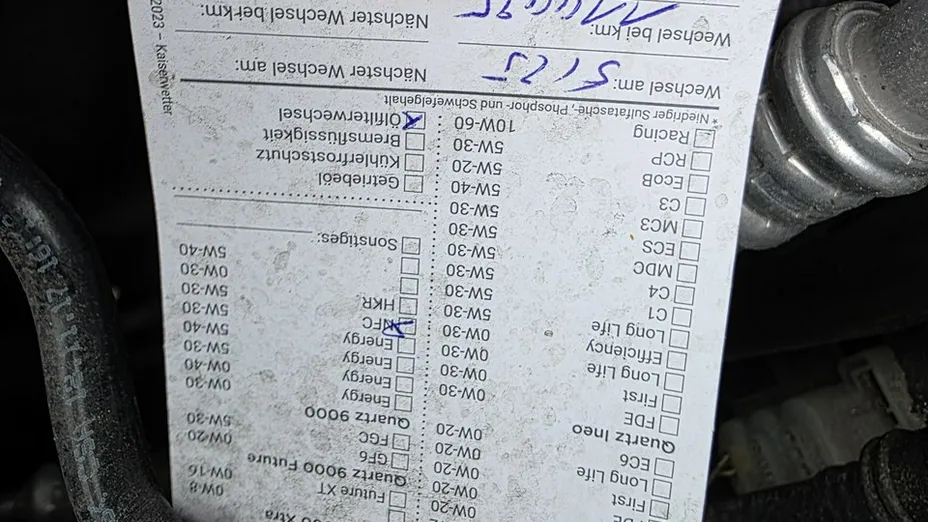 0W-20
FDE 0W-20
First 0W-20
Long Life 0W-20
EC6 0W-20
Quartz Ineo
FDE 0W-30
First 0W-30
Long Life 0W-30
Efficiency 0W-30
Long Life 5W-30
C1 5W-30
C4 5W-30
MDC 5W-30
ECS 5W-30
MC3 5W-30
C3 5W-40
EcoB 5W-20
RCP 5W-30
Racing 10W-60
Xtra
0W-8
Future XT 0W-16
Quartz 9000 Future
GF6 0W-20
FGC 5W-30
Quartz 9000
Energy 0W-30
Energy 0W-40
Energy 5W-30
Energy 5W-40
NFC 5W-30
HKR 5W-30
0W-30
5W-40
Sonstiges:
Getriebeöl
Kühlerfrostschutz
Bremsflüssigkeit
Ölfilterwechsel
* Niedriger Sulfatasche-, Phosphor- und Schwefelgehalt
Wechsel am: Nächster Wechsel am:
Wechsel bei km: Nächster Wechsel bei km:
2023 – Kaiserwetter